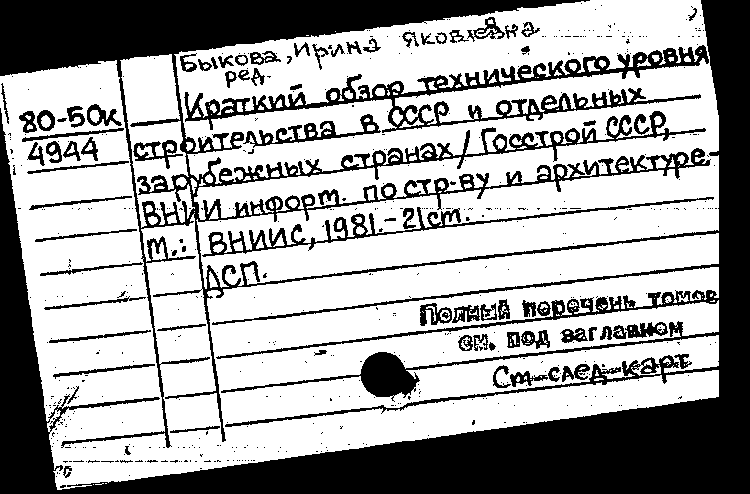 Быкова, Ирина Яковлевна
ред.
80-50к
4944
Краткий обзор технического уровня
строительства в СССР и отдельных
зарубежных странах / Госстрой СССР,
ВНИИ информ. по стр-ву и архитектуре.-
М.: ВНИИС, 1981.- 21 см.
ДСП.
Полный перечень томов
см. под заглавием
См-след-карт